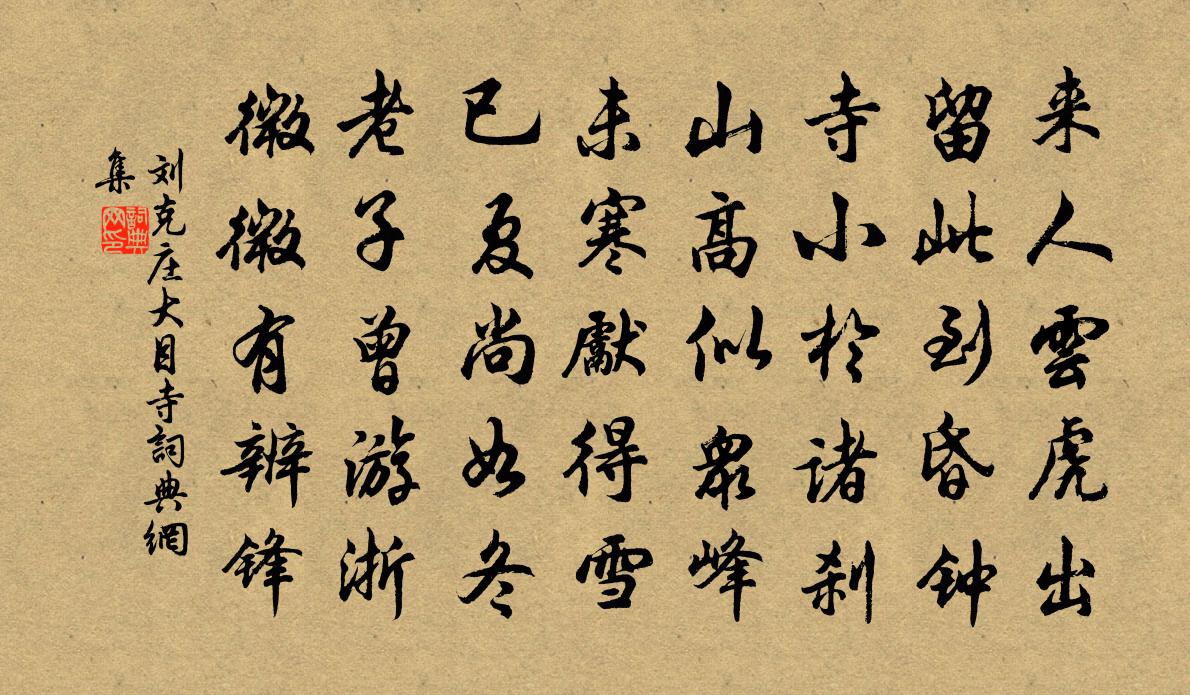 来人雲虎出
留此到昏钟
寺小於諸刹
山高似衆峰
未寒獻得雪
已夏尚如冬
老子曾游浙
微微有辨锋
刘克庄大目寺詞典網
集
詞典
网印